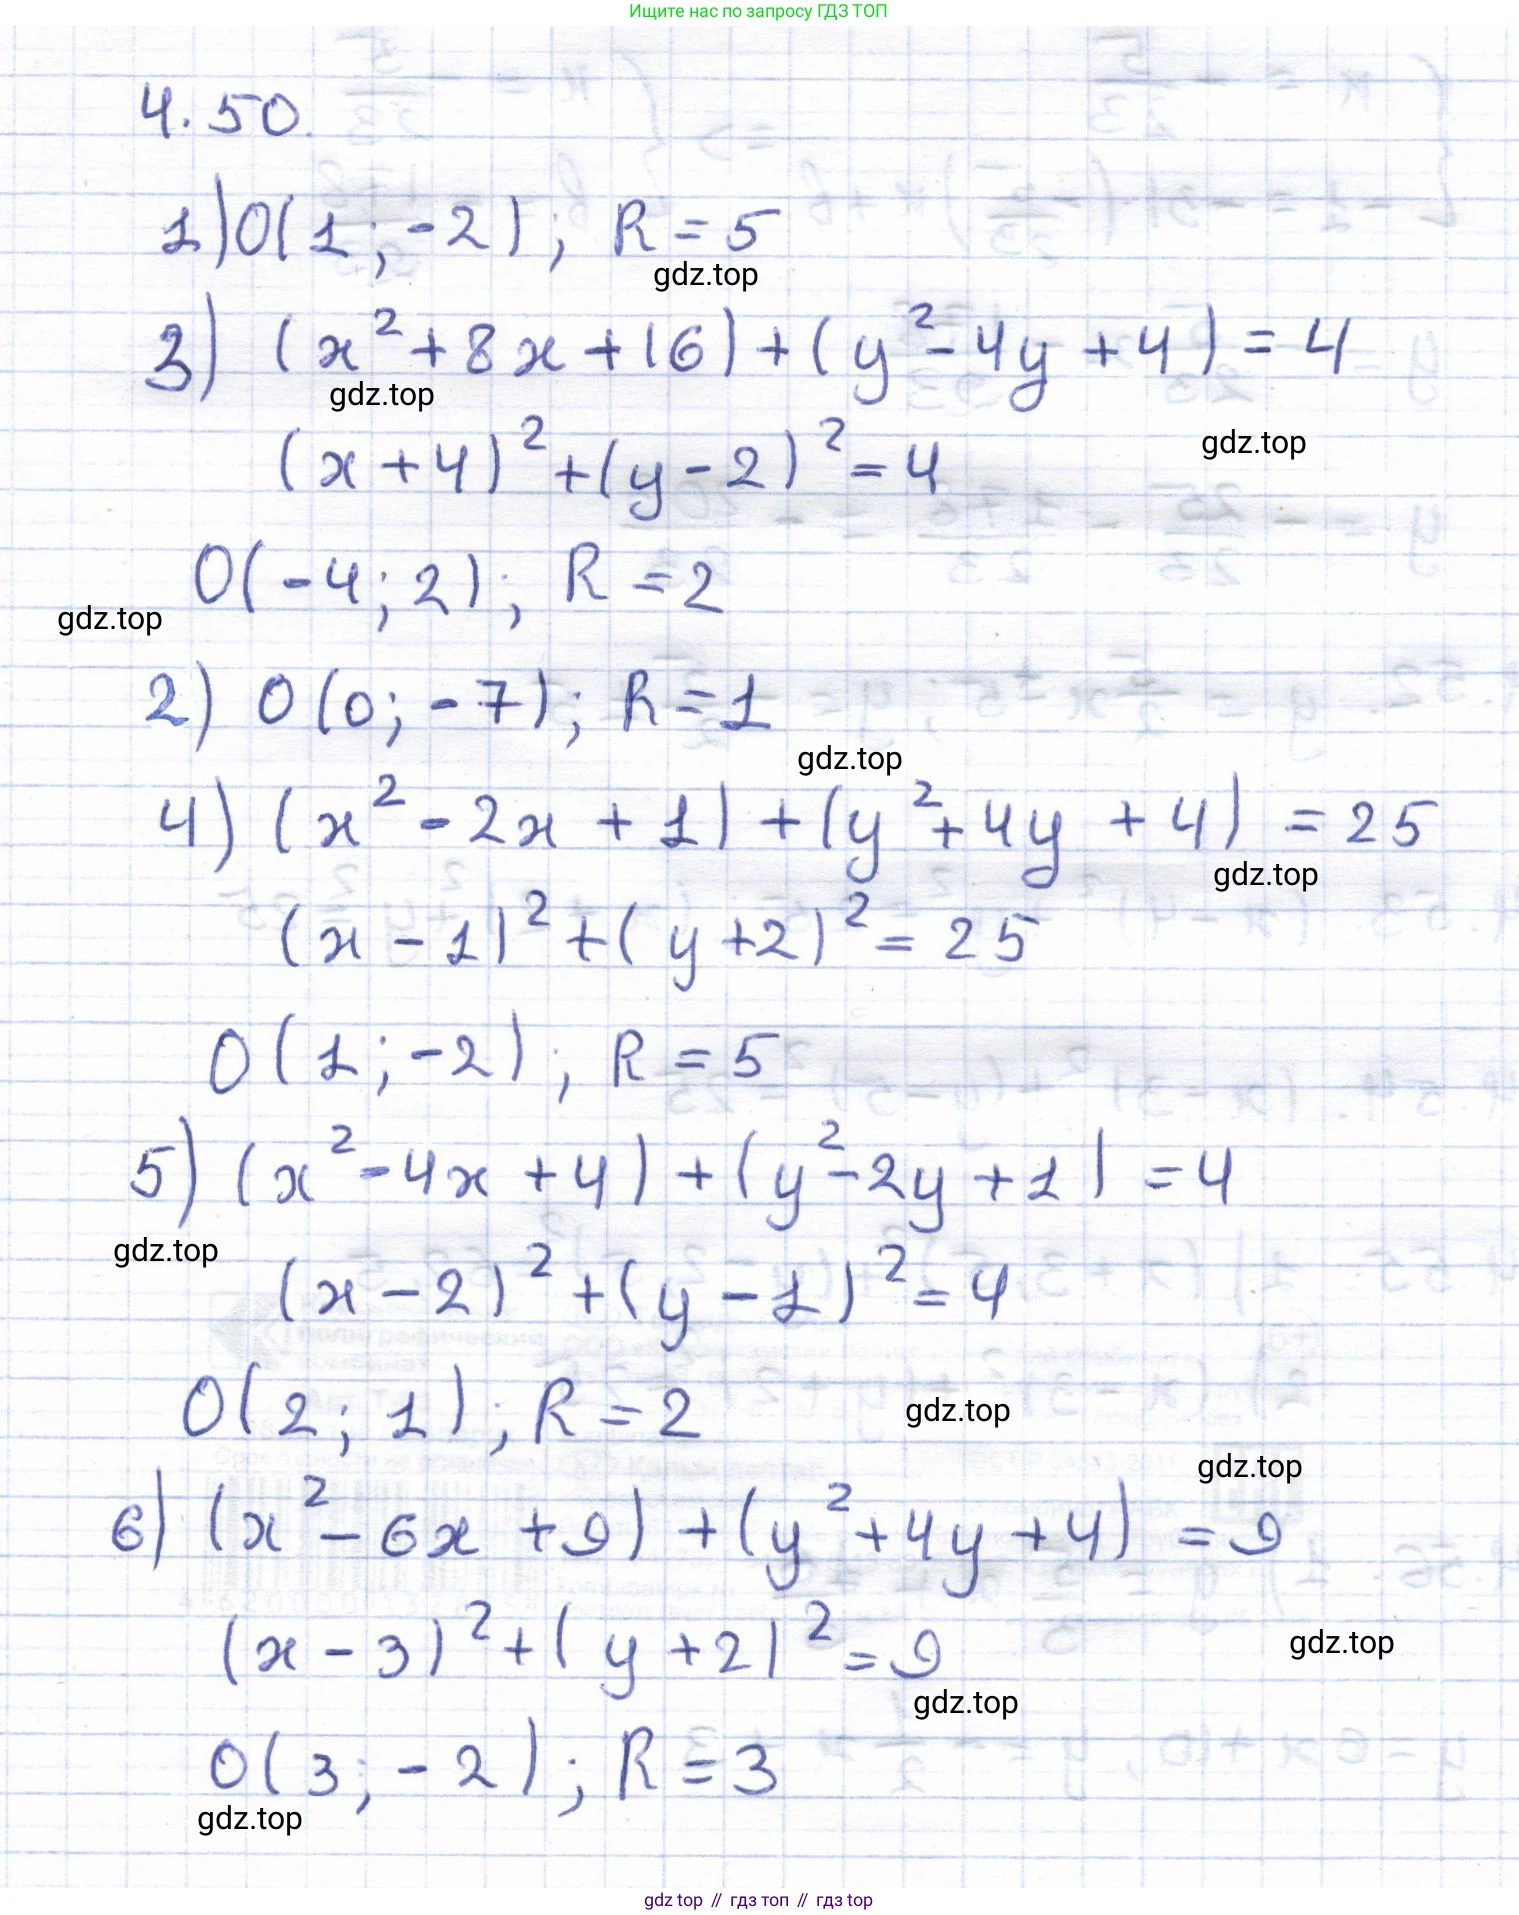 Ищите нас по запросу ГДЗ ТОП
4.50.
1) O(1; -2); R = 5
gdz.top
3) (x² + 8x + 16) + (y² - 4y + 4) = 4
gdz.top
gdz.top
(x + 4)² + (y - 2)² = 4
O(-4; 2); R = 2
gdz.top
2) O(0; -7); R = 1
gdz.top
4) (x² - 2x + 1) + (y² + 4y + 4) = 25
gdz.top
(x - 1)² + (y + 2)² = 25
O(1; -2); R = 5
5) (x² - 4x + 4) + (y² - 2y + 1) = 4
gdz.top
(x - 2)² + (y - 1)² = 4
O(2; 1); R = 2
gdz.top
gdz.top
6) (x² - 6x + 9) + (y² + 4y + 4) = 9
(x - 3)² + (y + 2)² = 9
gdz.top
gdz.top
O(3; -2); R = 3
gdz.top
gdz top // гдз топ // гдз top